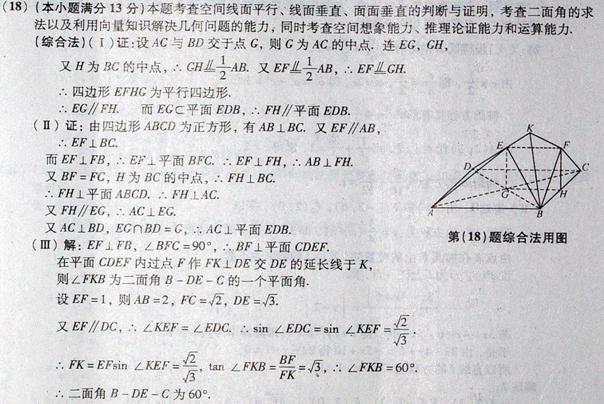 (18) (本小题满分13分)本题考查空间线面平行、线面垂直、面面垂直的判断与证明，考查二面角的求
法以及利用向量知识解决几何问题的能力，同时考查空间想象能力、推理论证能力和运算能力.
(综合法)(Ⅰ)证:设AC与BD交于点G，则G为AC的中点. 连EG,GH,
又H为BC的中点，∴GH∥=1/2AB. 又EF∥=1/2AB，∴EF∥=GH.
∴四边形EFHG为平行四边形.
∴EG∥FH. 而EG⊂平面EDB，∴FH∥平面EDB.
(Ⅱ)证:由四边形ABCD为正方形，有AB⊥BC. 又EF∥AB，
∴EF⊥BC.
而EF⊥FB，∴EF⊥平面BFC. ∴EF⊥FH，∴AB⊥FH.
又BF=FC，H为BC的中点，∴FH⊥BC.
∴FH⊥平面ABCD. ∴FH⊥AC.
又FH∥EG，∴AC⊥EG.
又AC⊥BD，EG∩BD=G，∴AC⊥平面EDB.
(Ⅲ)解:EF⊥FB，∠BFC=90°，∴BF⊥平面CDEF.
在平面CDEF内过点F作FK⊥DE交DE的延长线于K，
则∠FKB为二面角B-DE-C的一个平面角.
设EF=1，则AB=2，FC=√2，DE=√3.
又EF∥DC，∴∠KEF=∠EDC. ∴sin∠EDC=sin∠KEF=√2/√3.
∴FK=EFsin∠KEF=√2/√3，tan∠FKB=BF/FK=√3，∴∠FKB=60°.
∴二面角B-DE-C为60°.
K
E
F
D
C
G
H
A
B
第(18)题综合法用图